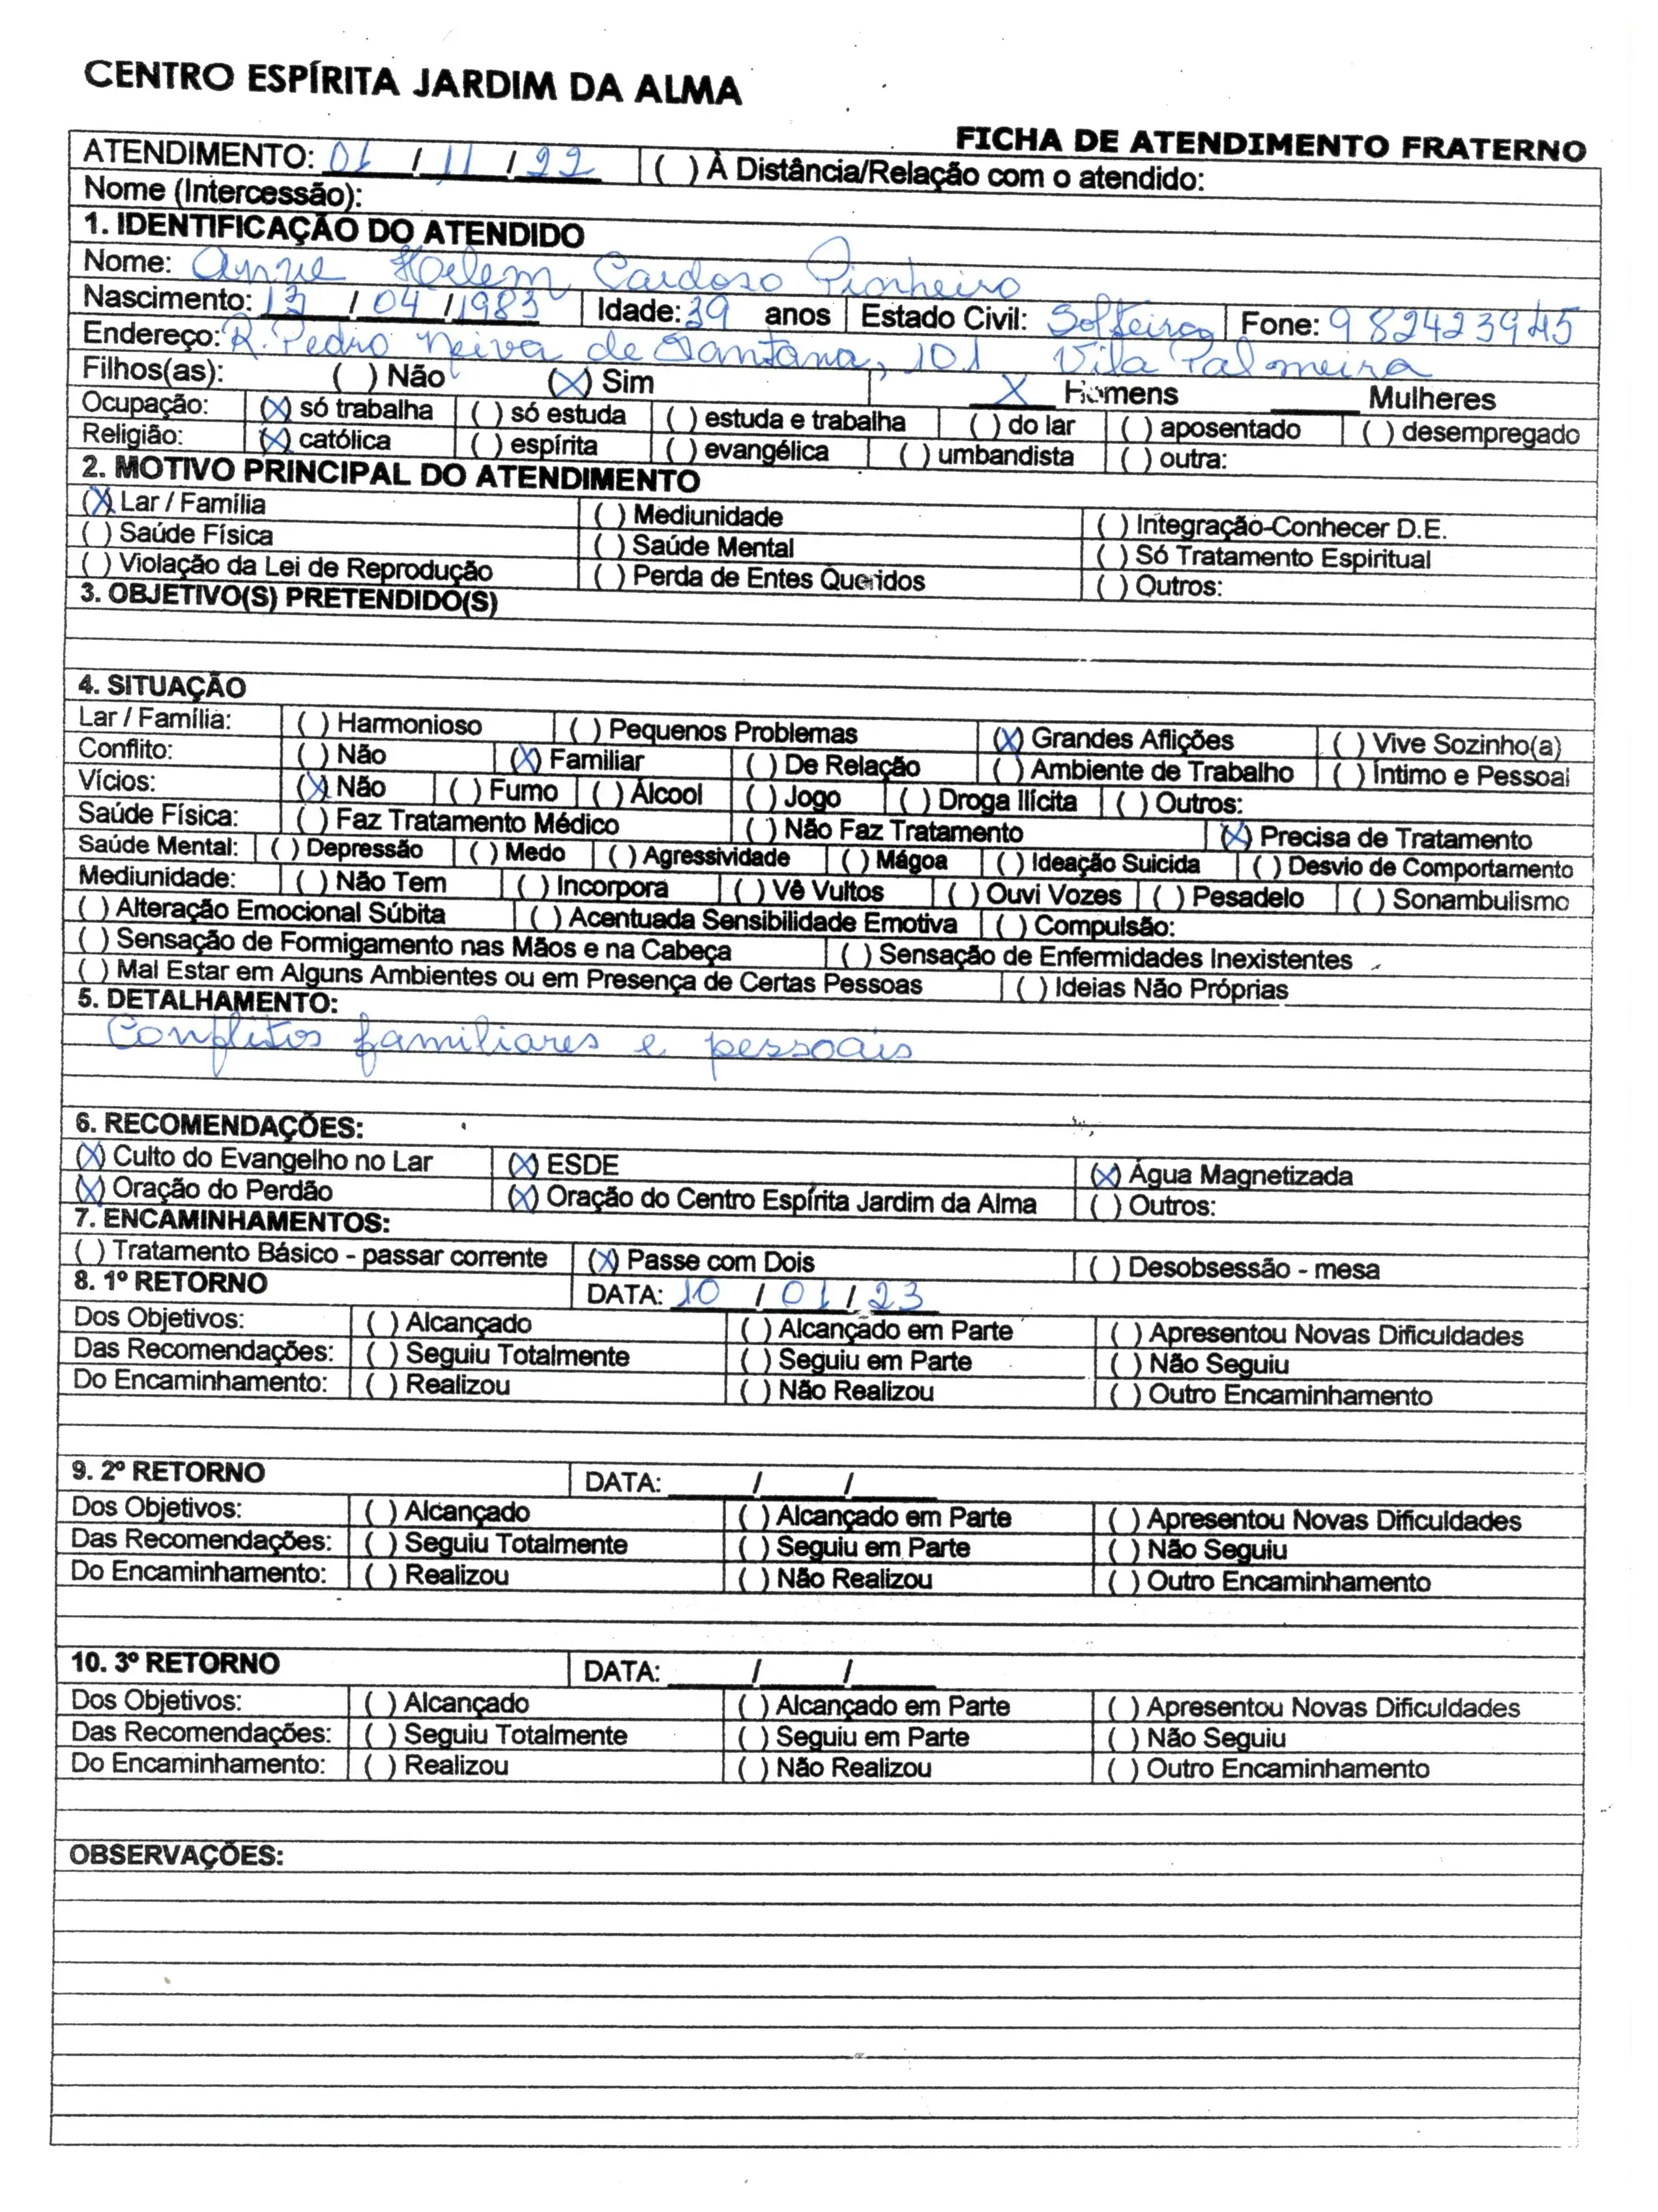 CENTRO ESPÍRITA JARDIM DA ALMA
FICHA DE ATENDIMENTO FRATERNO
ATENDIMENTO: 01 / 11 / 22 ( ) À Distância/Relação com o atendido:
Nome (Intercessão):
1. IDENTIFICAÇÃO DO ATENDIDO
Nome: Anne Helem Cardoso Pinheiro
Nascimento: 13 / 04 / 1983 Idade: 39 anos Estado Civil: Solteira Fone: 982423945
Endereço: R. Pedro Neiva de Santana, 101 Vila Palmeira
Filhos(as): ( ) Não (X) Sim X Homens ____ Mulheres
Ocupação: (X) só trabalha ( ) só estuda ( ) estuda e trabalha ( ) do lar ( ) aposentado ( ) desempregado
Religião: (X) católica ( ) espírita ( ) evangélica ( ) umbandista ( ) outra:
2. MOTIVO PRINCIPAL DO ATENDIMENTO
(X) Lar / Família ( ) Mediunidade ( ) Integração-Conhecer D.E.
( ) Saúde Física ( ) Saúde Mental ( ) Só Tratamento Espiritual
( ) Violação da Lei de Reprodução ( ) Perda de Entes Queridos ( ) Outros:
3. OBJETIVO(S) PRETENDIDO(S)
4. SITUAÇÃO
Lar / Família: ( ) Harmonioso ( ) Pequenos Problemas (X) Grandes Aflições ( ) Vive Sozinho(a)
Conflito: ( ) Não (X) Familiar ( ) De Relação ( ) Ambiente de Trabalho ( ) Íntimo e Pessoal
Vícios: (X) Não ( ) Fumo ( ) Álcool ( ) Jogo ( ) Droga Ilícita ( ) Outros:
Saúde Física: ( ) Faz Tratamento Médico ( ) Não Faz Tratamento (X) Precisa de Tratamento
Saúde Mental: ( ) Depressão ( ) Medo ( ) Agressividade ( ) Mágoa ( ) Ideação Suicida ( ) Desvio de Comportamento
Mediunidade: ( ) Não Tem ( ) Incorpora ( ) Vê Vultos ( ) Ouvi Vozes ( ) Pesadelo ( ) Sonambulismo
( ) Alteração Emocional Súbita ( ) Acentuada Sensibilidade Emotiva ( ) Compulsão:
( ) Sensação de Formigamento nas Mãos e na Cabeça ( ) Sensação de Enfermidades Inexistentes
( ) Mal Estar em Alguns Ambientes ou em Presença de Certas Pessoas ( ) Ideias Não Próprias
5. DETALHAMENTO:
Conflitos familiares e pessoais
6. RECOMENDAÇÕES:
(X) Culto do Evangelho no Lar (X) ESDE (X) Água Magnetizada
(X) Oração do Perdão (X) Oração do Centro Espírita Jardim da Alma ( ) Outros:
7. ENCAMINHAMENTOS:
( ) Tratamento Básico - passar corrente (X) Passe com Dois ( ) Desobsessão - mesa
8. 1º RETORNO DATA: 10 / 01 / 23
Dos Objetivos: ( ) Alcançado ( ) Alcançado em Parte ( ) Apresentou Novas Dificuldades
Das Recomendações: ( ) Seguiu Totalmente ( ) Seguiu em Parte ( ) Não Seguiu
Do Encaminhamento: ( ) Realizou ( ) Não Realizou ( ) Outro Encaminhamento
9. 2º RETORNO DATA: ____/____/____
Dos Objetivos: ( ) Alcançado ( ) Alcançado em Parte ( ) Apresentou Novas Dificuldades
Das Recomendações: ( ) Seguiu Totalmente ( ) Seguiu em Parte ( ) Não Seguiu
Do Encaminhamento: ( ) Realizou ( ) Não Realizou ( ) Outro Encaminhamento
10. 3º RETORNO DATA: ____/____/____
Dos Objetivos: ( ) Alcançado ( ) Alcançado em Parte ( ) Apresentou Novas Dificuldades
Das Recomendações: ( ) Seguiu Totalmente ( ) Seguiu em Parte ( ) Não Seguiu
Do Encaminhamento: ( ) Realizou ( ) Não Realizou ( ) Outro Encaminhamento
OBSERVAÇÕES: